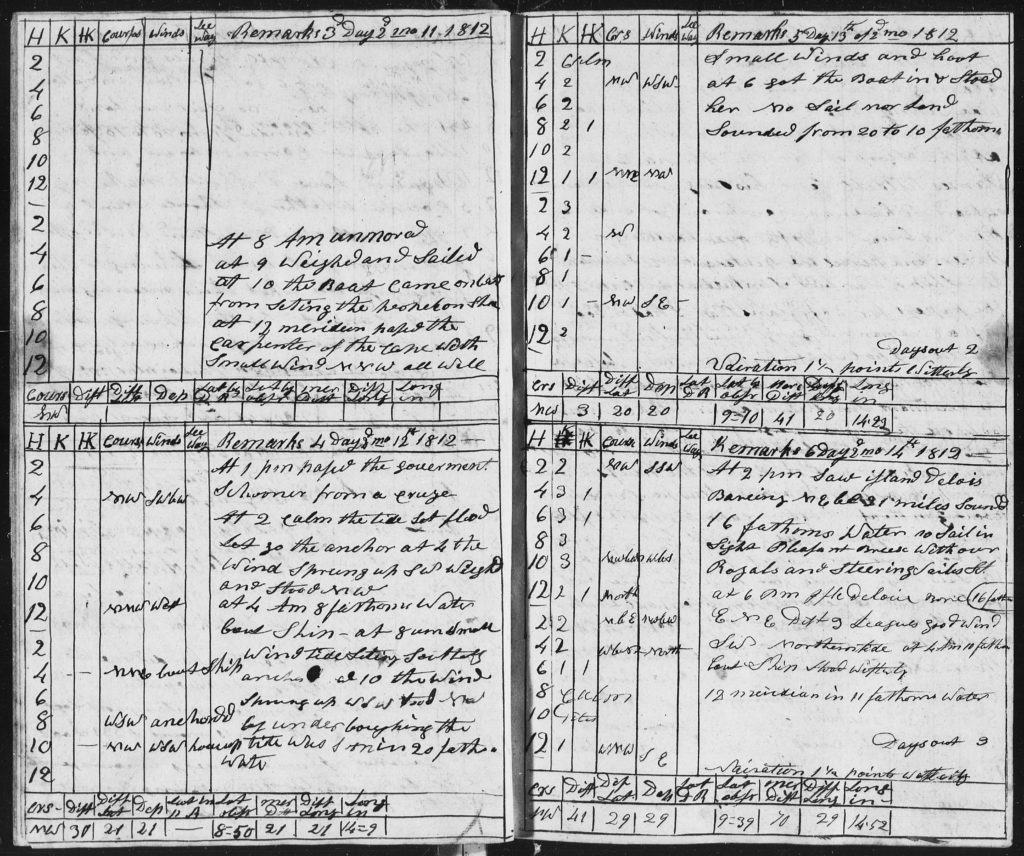 H K HK Courses Winds Lee Way Remarks 3d Day 2d mo 11 1812
2
4
6
8
10
12
2
4 At 8 Am unmored
6 at 9 Weighed and Sailed
at 10 the Boat came on board
8 from seting the
at 12 meridien pased the
10 carpenter of the cape with
12 Small Wind NNW all Well
Cours Dist Diff Lat Dep Lat by D R Lat by obsr mer Dist Diff Long Long in
NW
H K HK Cours Winds Lee Way Remarks 4 Day 2d mo 12th 1812
2 At 1 pm pased the goverment
4 NW SWbW Schooner from a cruze
6 At 2 calm the tide set flood
8 Let go the anchor at 4 the
Wind Sprung up SW Weighd
10 and Stood NW
12 NNW West at 4 Am 8 fathoms Water
bout Ship - at 8 am Small
2 Wind tide Seting
4 — NNE bout Ship at 10 the Wind
6 Sprung up WSW Stood NW
8 WSW anchord by under the
10 — NW WSW tite was in 20 fath
12 Water
Crs Dist Diff Lat Dep Lat in D R Lat obsr mer Dist Diff Long Long in
NW 30 21 21 — 8=50 21 21 14=9
H K HK Crs Winds Lee Way Remarks 5 Day 13th of 2d mo 1812
2 Calm Small Winds and hoot
4 2 NW WSW at 6 got the Boat in & Stoed
6 2 her no Sail nor Land
8 2 1 Sounded from 20 to 10 fathoms
10 2
12 1 1 NNE NW
2 3
4 2 N
6 1
8 1
10 1 — NW SE —
12 2
Days out 2
Vairation 1½ points Witterly
Crs Dist Diff Lat Dep Lat D R Lat by obsr mer Dist Diff Long Long in
NW 3 20 20 9=10 41 20 14=23
H K HK Cours Winds Lee Way Remarks 6 Day 2d mo 14th 1812
2 2 NW SSW At 2 pm Saw island Delois
4 3 1 Bareing miles Sound
6 3 1 16 fathoms Water no Sail in
8 3 Sight Pleasant Breese With our
10 3 Royals and Steering Sailes Set
12 2 1 North at 6 pm Isle Deloise bore 16 fath
2 2 NbE ENE Dist 9 Leagues good Wind
4 2 WbN North SW Northern tide at 4 Am 10 fathom
6 1 1 bout Ship Stood Witterly
8 12 meridian in 11 fathoms Water
10
12 1 WNW SE Days out 3
Vairation 1½ points Witterly
Crs Dist Dif Lat Dep Lat D R Lat obsr mer Dist Diff Long Long in
NW 41 29 29 9=39 70 29 14=52